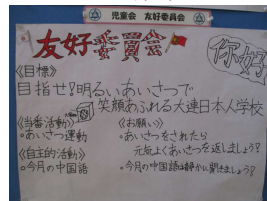 児童会 友好委員会
友好委員会
你好
《目標》
目指せ!?明るいあいさつで
笑顔あふれる大連日本人学校
《当番活動》
・あいさつ運動
《自主的活動》
・今月の中国語
《お願い》
・あいさつをされたら
元気よくあいさつを返しましょう!?
・今月の中国語は静かに聞きましょう!?